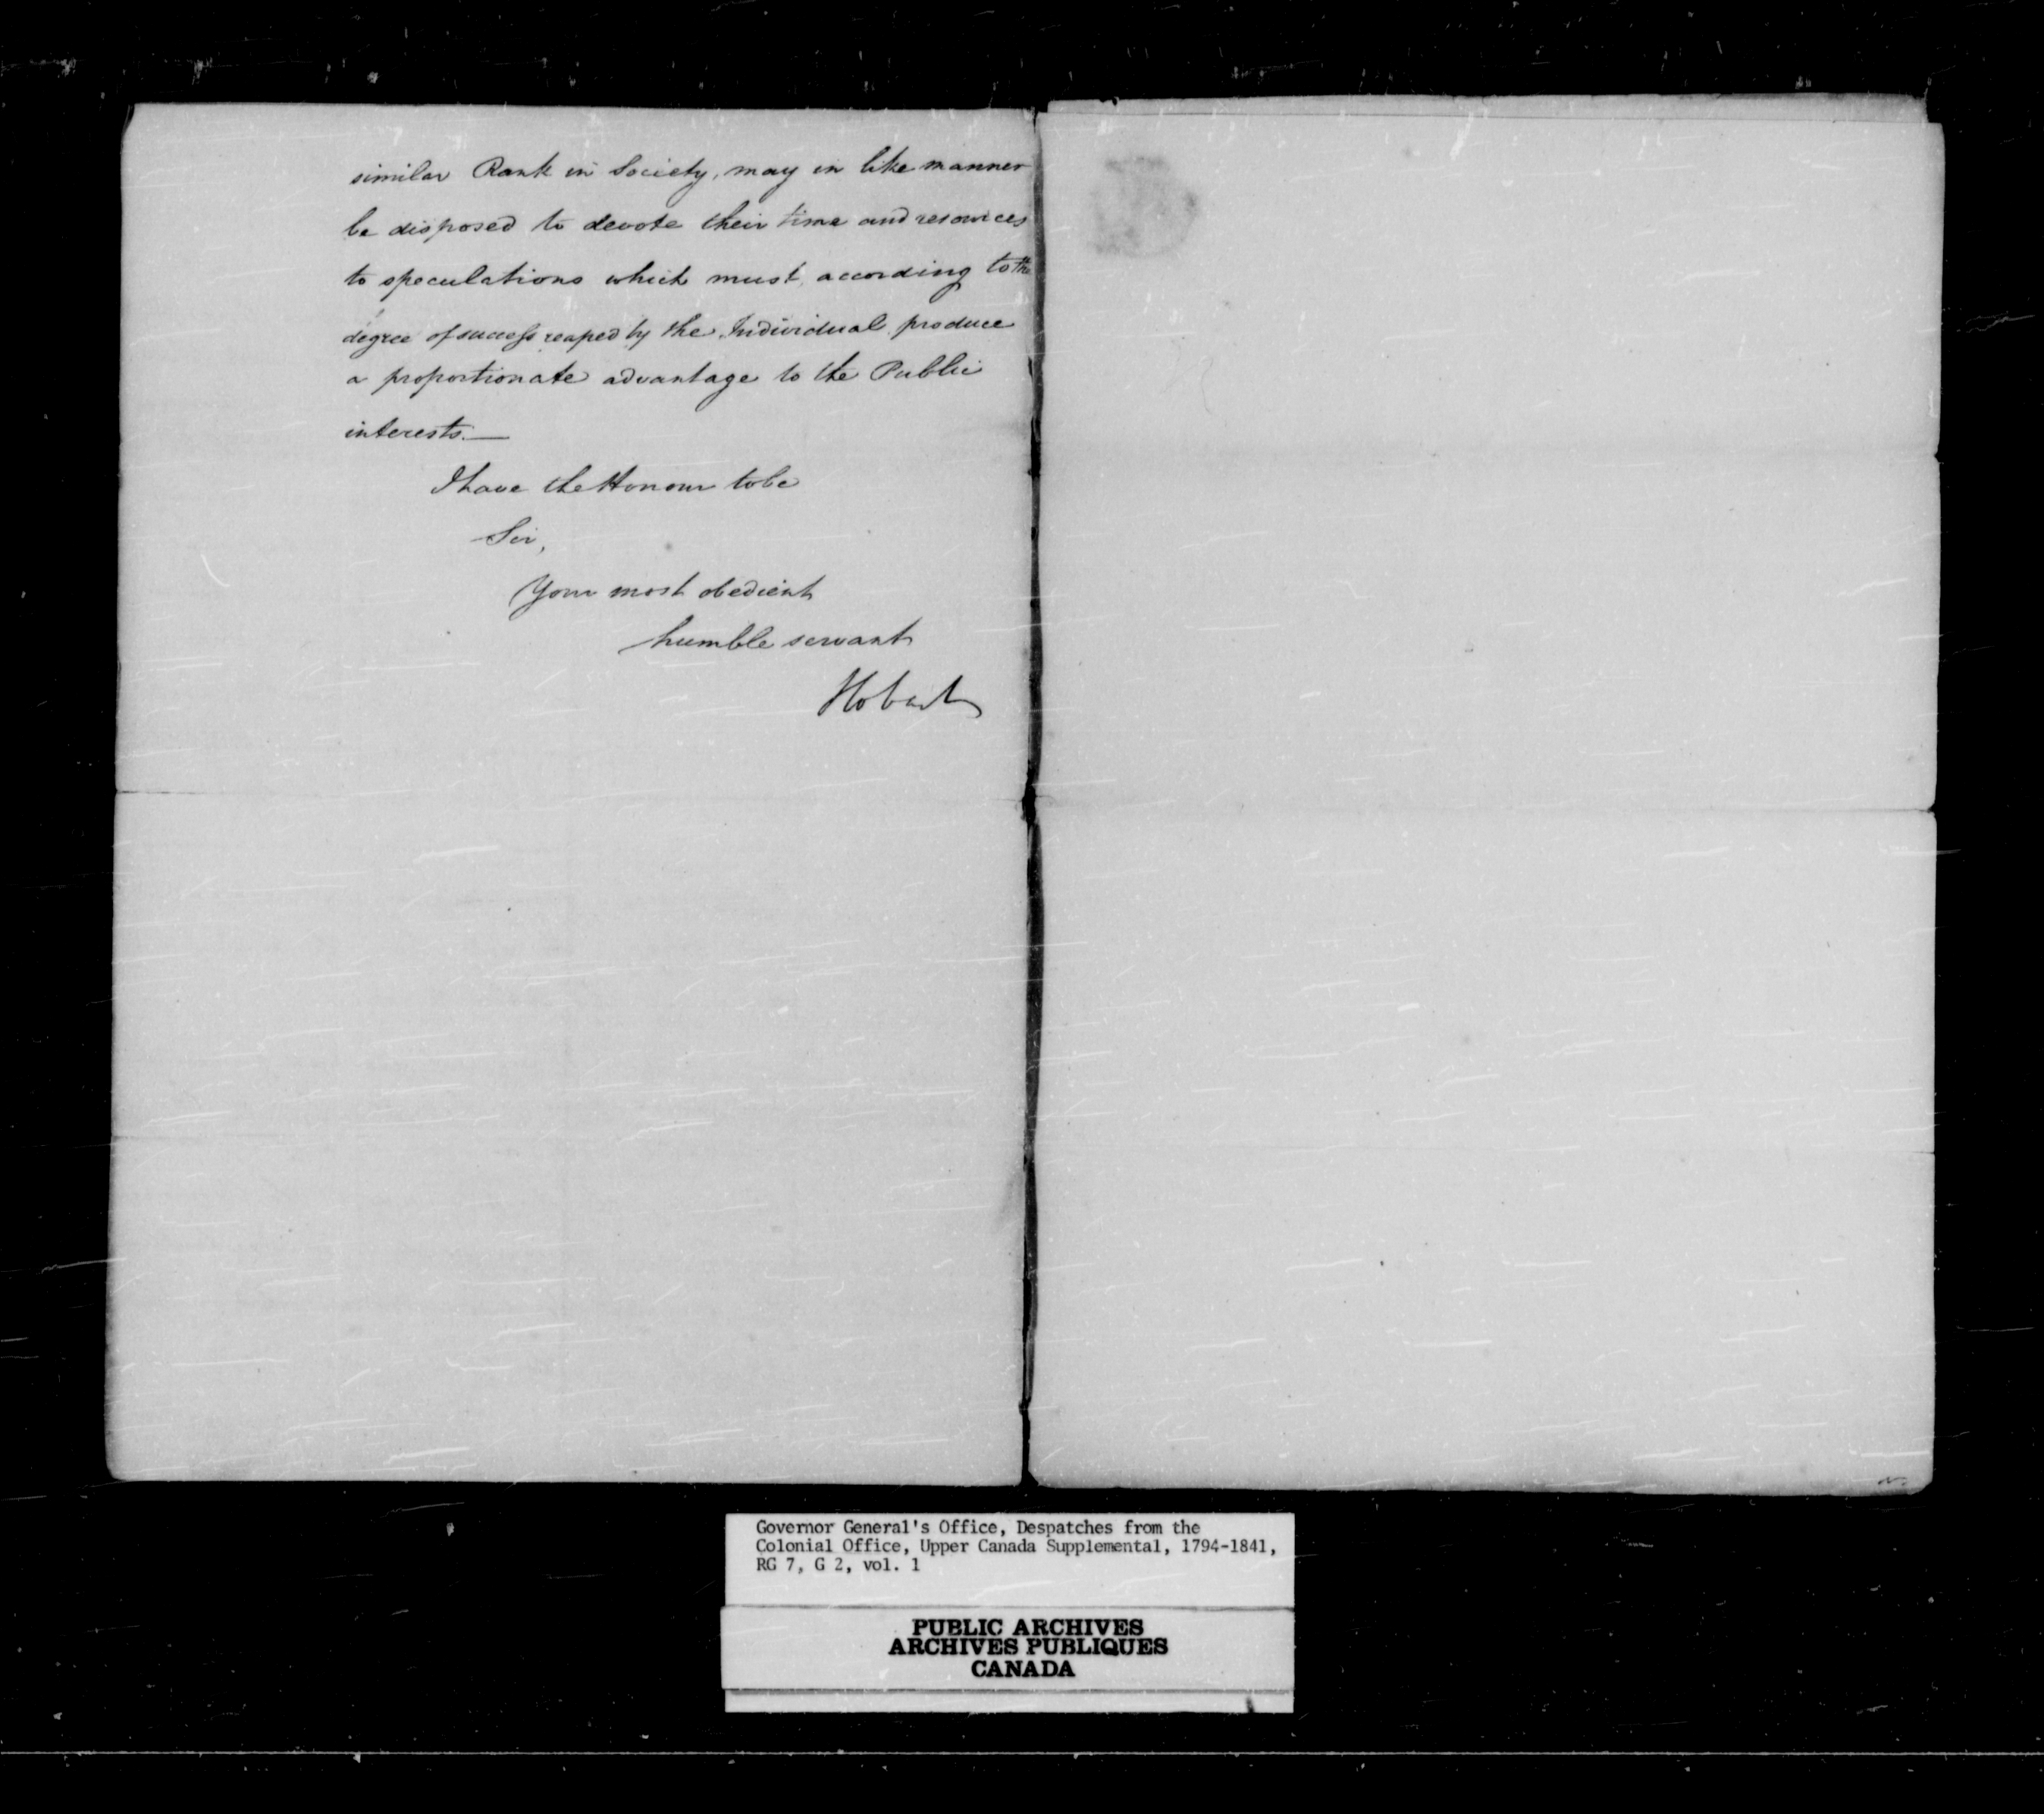 similar Rank in Society, may in like manner
be disposed to devote their time and resources
to speculations which must, according to the
degree of success reaped by the Individual, produce
a proportionate advantage to the Public
interests.—
I have the Honour to be
Sir,
Your most obedient
humble servant
Hobart
Governor General's Office, Despatches from the
Colonial Office, Upper Canada Supplemental, 1794-1841,
RG 7, G 2, vol. 1
PUBLIC ARCHIVES
ARCHIVES PUBLIQUES
CANADA